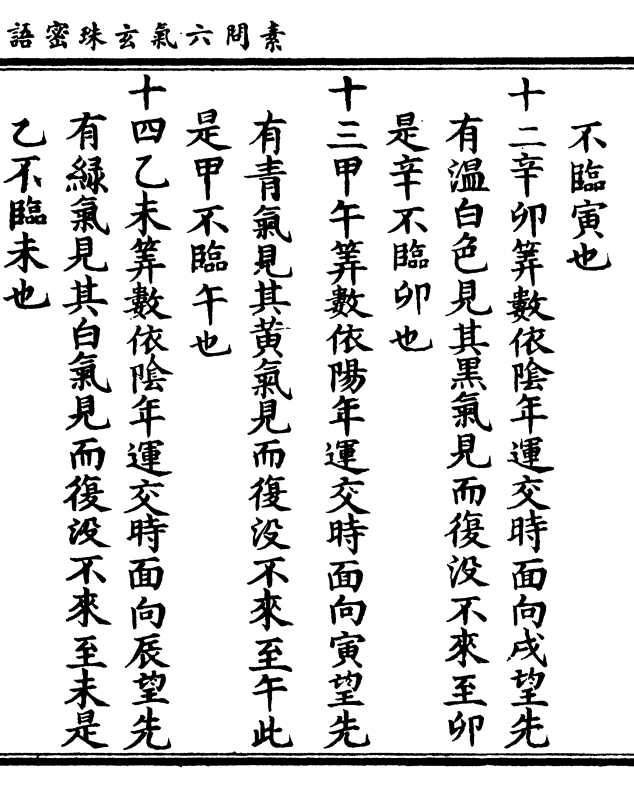 素問六氣玄珠密語
不臨寅也
十二辛卯筭數依陰年運交時面向戌望先
有溫白色見其黑氣見而復没不來至卯
是辛不臨卯也
十三甲午筭數依陽年運交時面向寅望先
有青氣見其黄氣見而復没不來至午此
是甲不臨午也
十四乙未筭數依陰年運交時面向辰望先
有緑氣見其白氣見而復没不來至未是
乙不臨未也